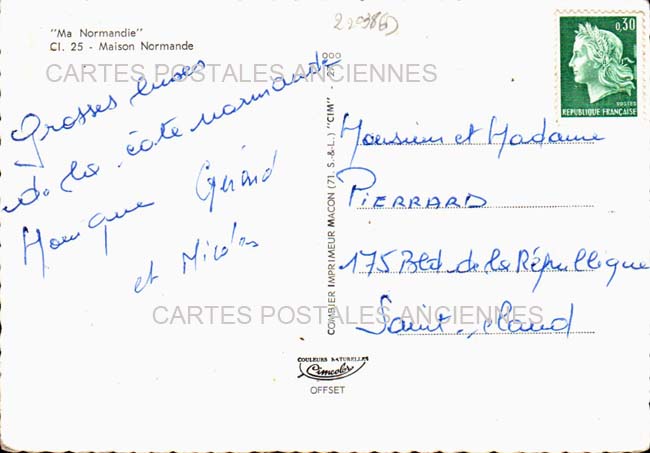 "Ma Normandie"
Cl. 25 - Maison Normande
CARTES POSTALES ANCIENNES
Grosses bises
de la côte normande
Monique Gérard
et Nicolas
COMBIER IMPRIMEUR MACON (71. S.-&-L.) "CIM"
0,30
POSTES
REPUBLIQUE FRANÇAISE
Monsieur et Madame
PIERRARD
175 Bld de la République
Saint-Cloud
CARTES POSTALES ANCIENNES
COULEURS NATURELLES
Cimcolor
OFFSET